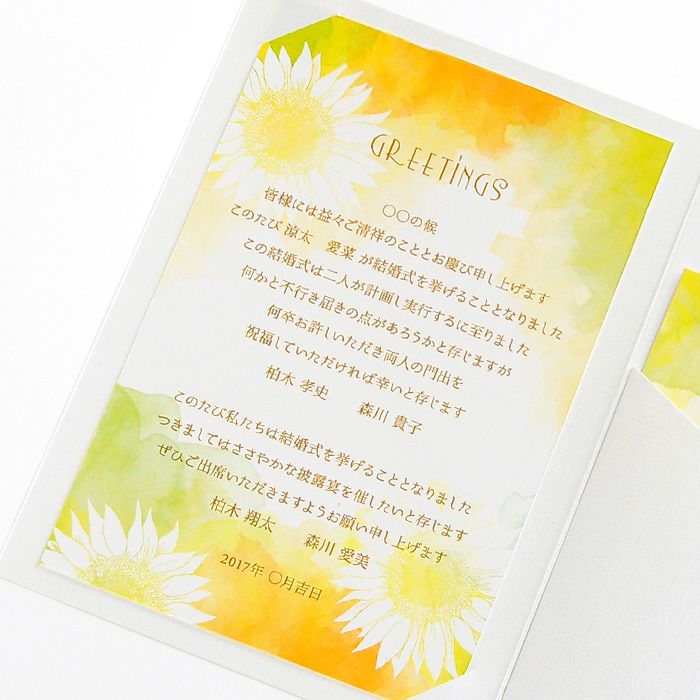 GREETINGS
〇〇の候
皆様には益々ご清祥のこととお慶び申し上げます
このたび 涼太　愛菜 が結婚式を挙げることとなりました
この結婚式は二人が計画し実行するに至りました
何かと不行き届きの点があろうかと存じますが
何卒お許しいただき両人の門出を
祝福していただければ幸いと存じます
柏木 孝史　　森川 貴子
このたび私たちは結婚式を挙げることとなりました
つきましてはささやかな披露宴を催したいと存じます
ぜひご出席いただきますようお願い申し上げます
柏木 翔太　　森川 愛美
2017年 〇月吉日